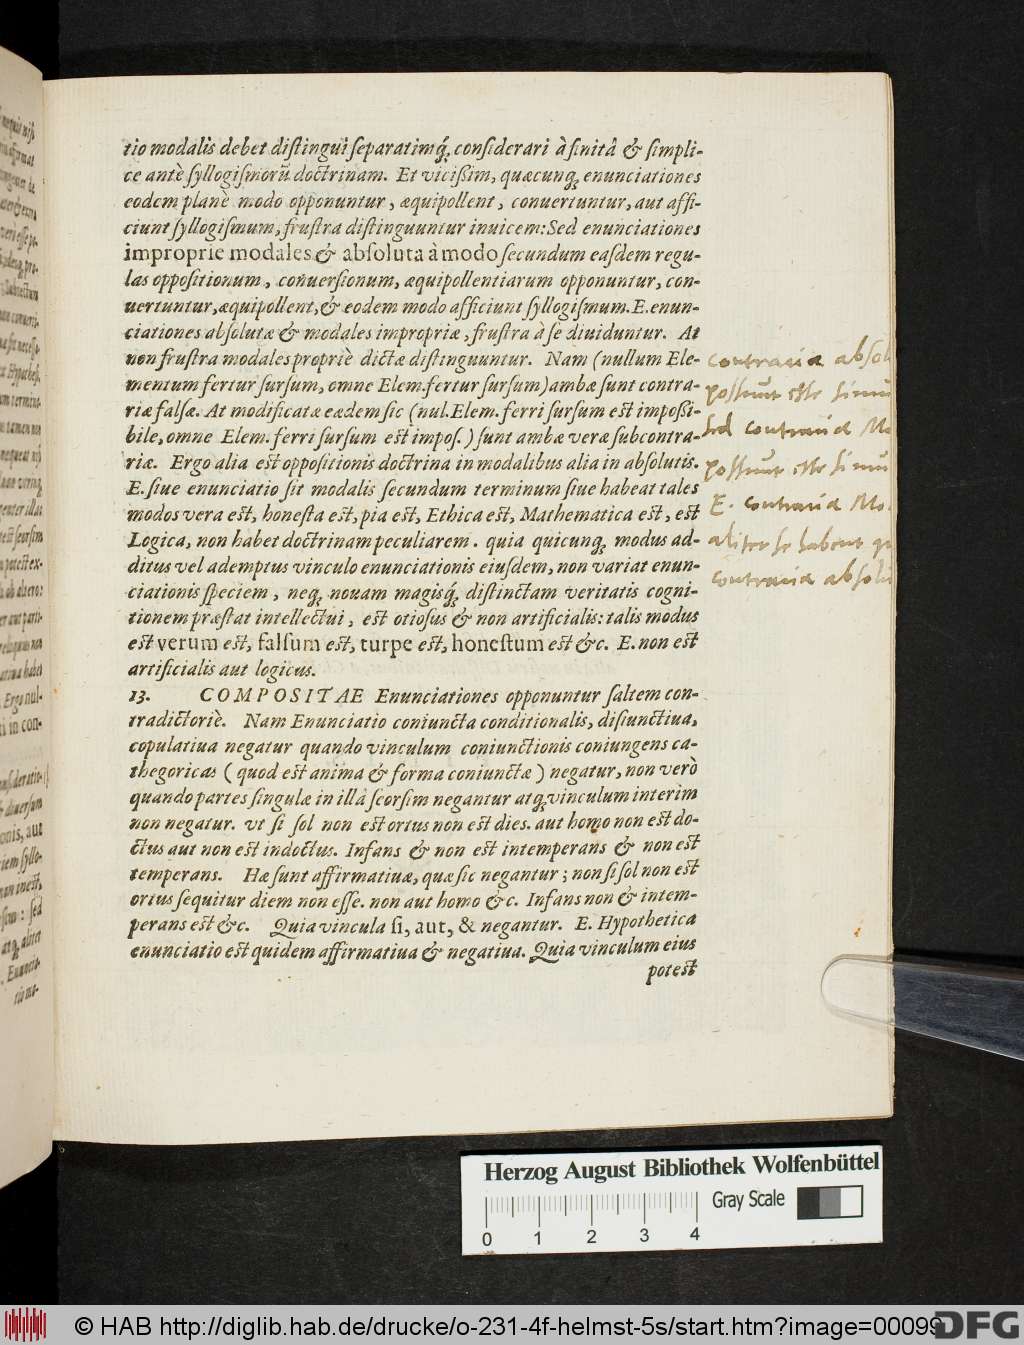 tio modalis debet distingui separatimq́; considerari à finitâ & simpli-
ce antè syllogismorũ doctrinam. Et vicißim, quæcunq; enunciationes
eodem planè modo opponuntur, æquipollent, conuertuntur, aut affi-
ciunt syllogismum, frustra distinguuntur inuicem: Sed enunciationes
improprie modales & absoluta à modo secundum easdem regu-
las oppositionum, conuersionum, æquipollentiarum opponuntur, con-
uertuntur, æquipollent, & eodem modo afficiunt syllogismum. E. enun-
ciationes absolutæ & modales impropriæ, frustra à se diuiduntur. At
non frustra modales propriè dictæ distinguuntur. Nam (nullum Ele-
mentum fertur sursum, omne Elem. fertur sursum) ambæ sunt contra-
riæ falsæ. At modificatæ eædem sic (nul. Elem. ferri sursum est impoßi-
bile, omne Elem. ferri sursum est impos.) sunt ambæ veræ subcontra-
riæ. Ergo alia est oppositionis doctrina in modalibus alia in absolutis.
E. siue enunciatio sit modalis secundum terminum siue habeat tales
modos vera est, honesta est, pia est, Ethica est, Mathematica est, est
Logica, non habet doctrinam peculiarem. quia quicunq; modus ad-
ditus vel ademptus vinculo enunciationis eiusdem, non variat enun-
ciationis speciem, neq; nouam magisq́; distinctam veritatis cogni-
tionem præstat intellectui, est otiosus & non artificialis: talis modus
est verum est, falsum est, turpe est, honestum est &c. E. non est
artificialis aut logicus.
13. COMPOSITAE Enunciationes opponuntur saltem con-
tradictoriè. Nam Enunciatio coniuncta conditionalis, disiunctiua,
copulatiua negatur quando vinculum coniunctionis coniungens ca-
thegoricas (quod est anima & forma coniunctæ) negatur, non verò
quando partes singulæ in illâ seorsim negantur atq; vinculum interim
non negatur. vt si sol non est ortus non est dies. aut homo non est do-
ctus aut non est indoctus. Infans & non est intemperans & non est
temperans. Hæ sunt affirmatiuæ, quæ sic negantur; non si sol non est
ortus sequitur diem non esse. non aut homo &c. Infans non & intem-
perans est &c. Quia vincula si, aut, & negantur. E. Hypothetica
enunciatio est quidem affirmatiua & negatiua. Quia vinculum eius
potest
contraria absol
possunt esse simu
sed contraria Mo
possunt esse simu
E. contraria Mo.
aliter se habent qu
contraria absolu
Herzog August Bibliothek Wolfenbüttel
Gray Scale
0 1 2 3 4
© HAB http://diglib.hab.de/drucke/o-231-4f-helmst-5s/start.htm?image=00099
DFG